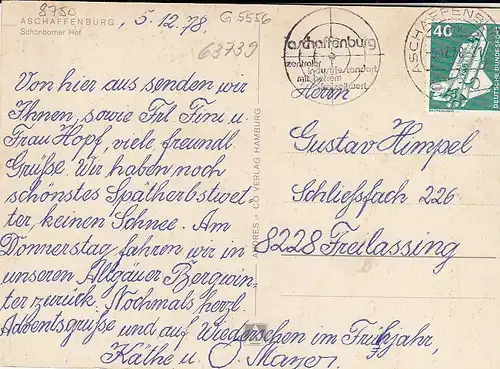 8750
ASCHAFFENBURG
Schönborner Hof
, 5.12.78.
G 5556
63739
Von hier aus senden wir
Ihnen, sowie Frl. Fini u.
Frau Hopf, viele freundl.
Grüße. Wir haben noch
schönstes Spätherbstwet-
ter, keinen Schnee. Am
Donnerstag fahren wir in
unseren Allgäuer Bergwin-
ter zurück. Nochmals herzl.
Adventsgrüße und auf Wiedersehen im Frühjahr,
Käthe u. O. Mayer.
ANDRES + CO VERLAG HAMBURG
aschaffenburg
zentraler
industriestandort
mit hohem
ASCHAFFENBURG
40
DEUTSCHE BUNDESPOST
Herrn
Gustav Himpel
Schließfach 226
8228 Freilassing